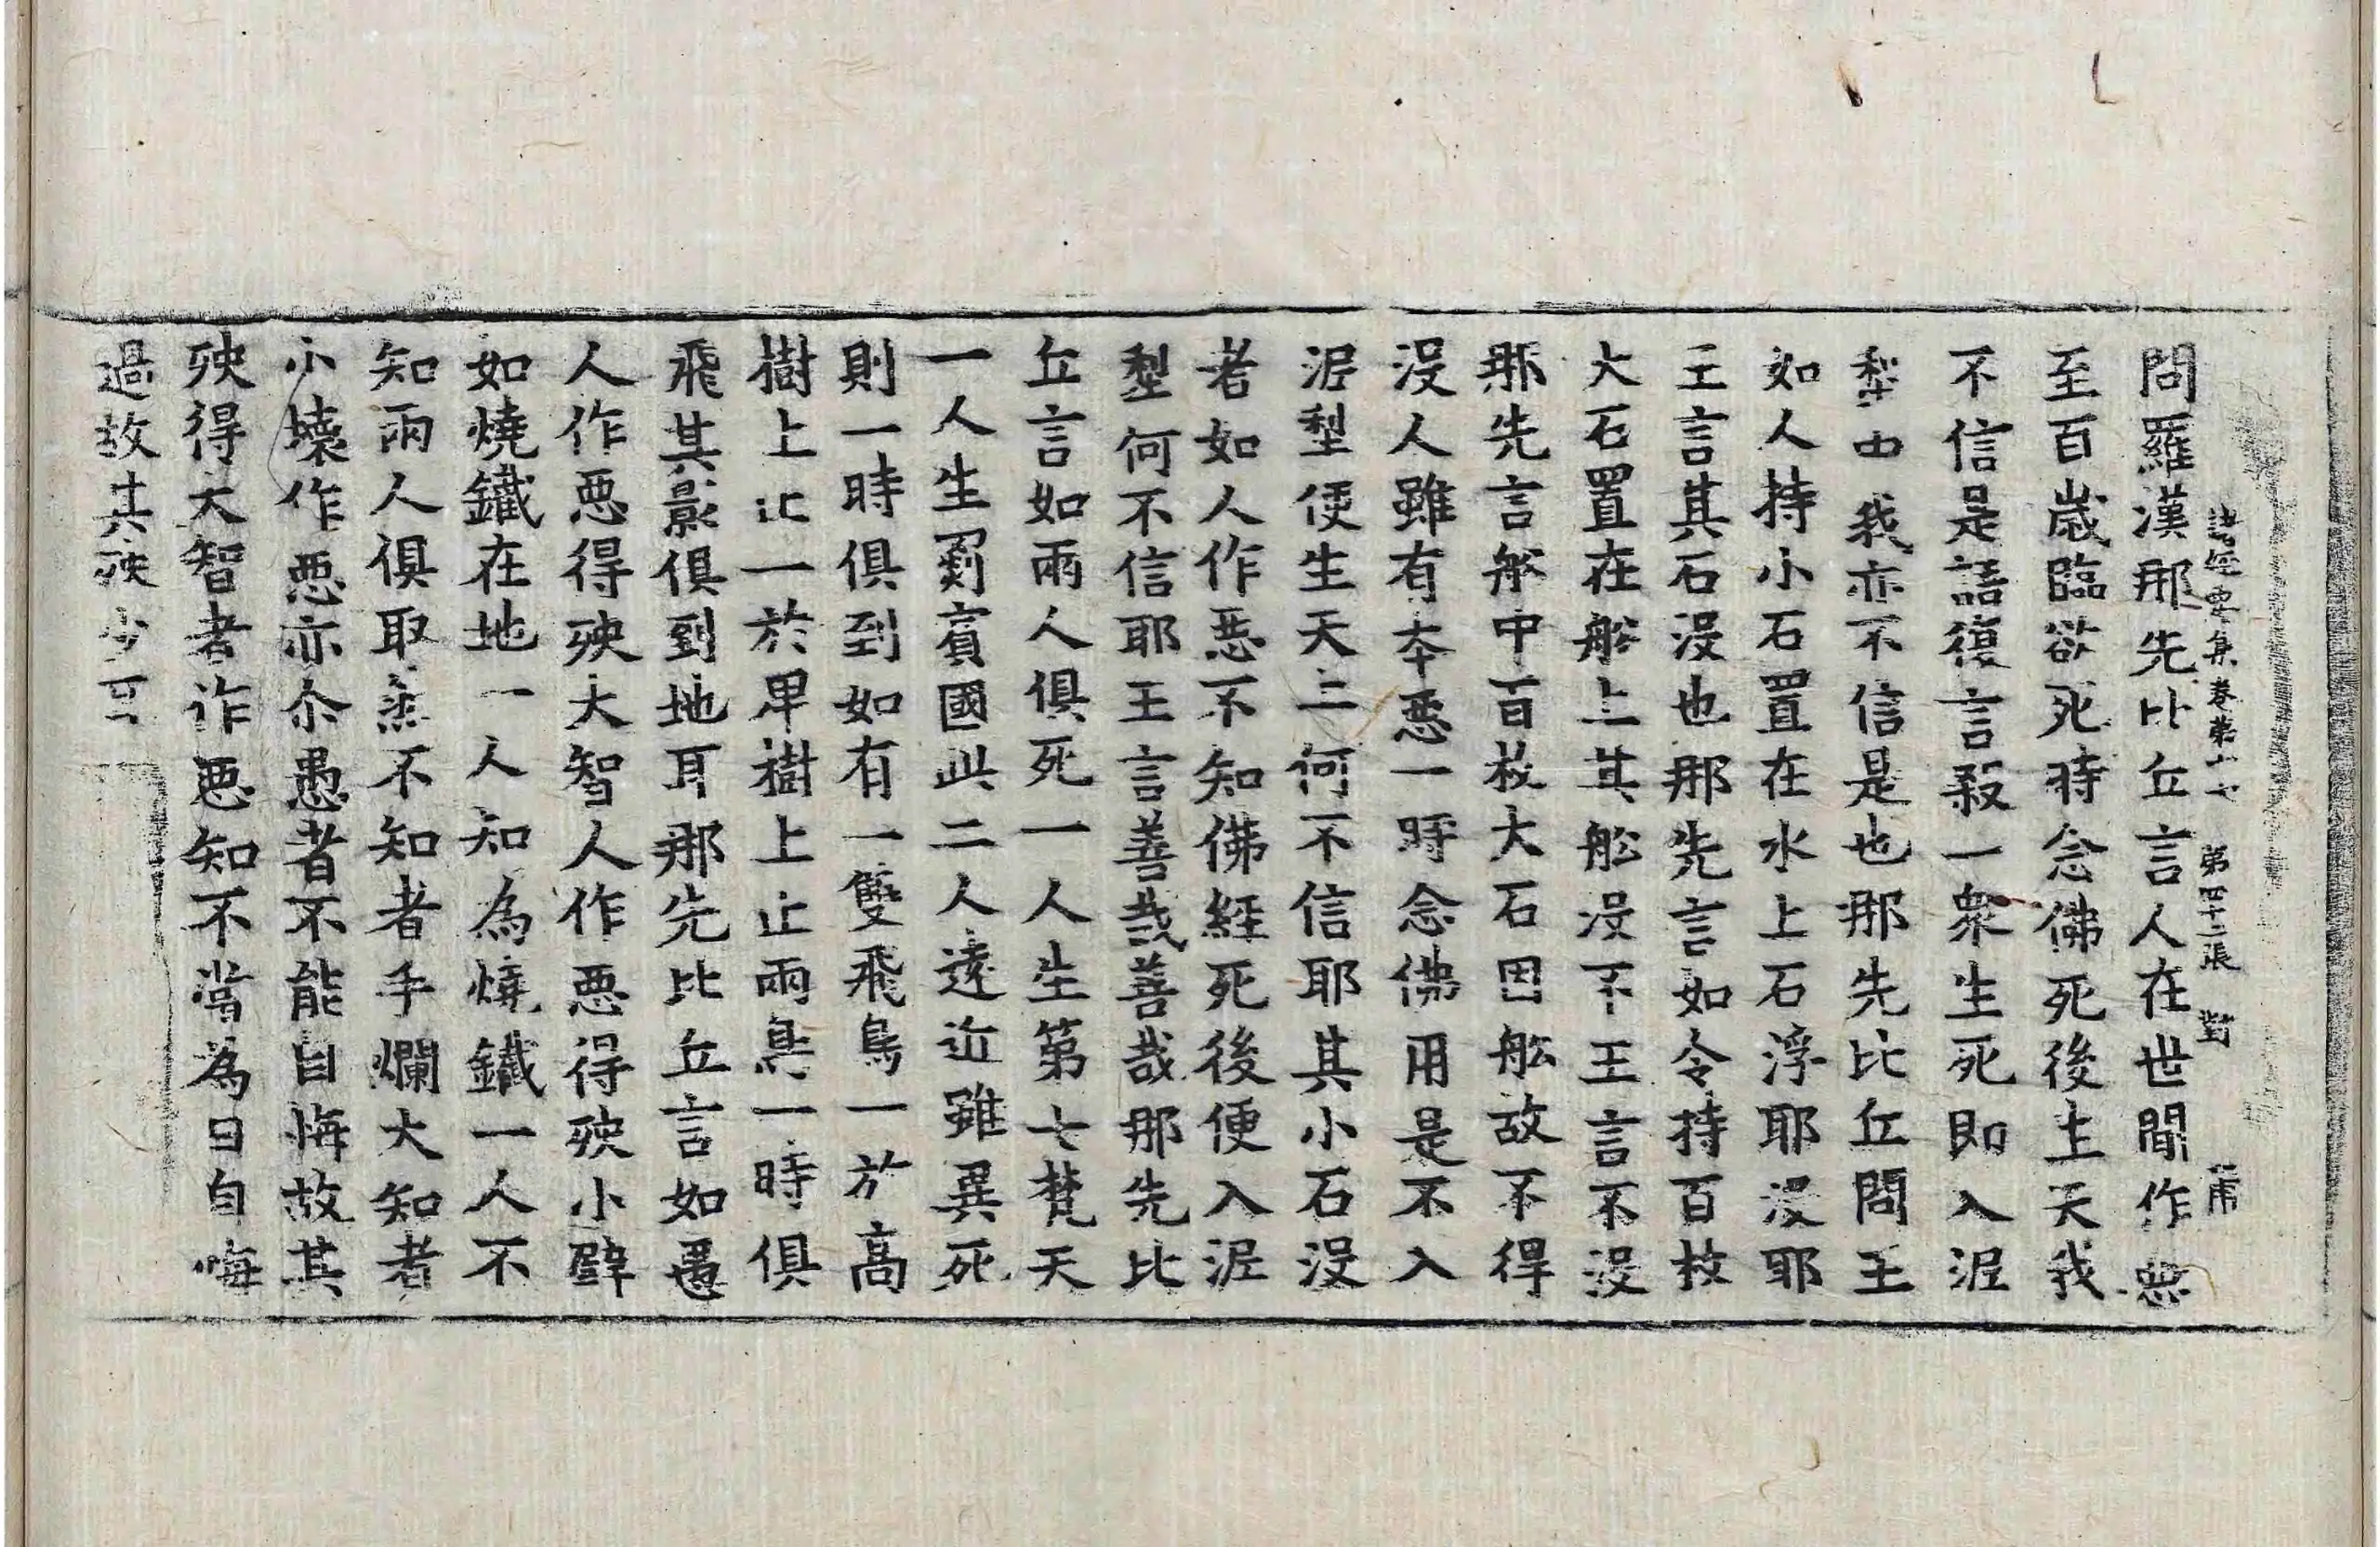 諸經要集卷第十七 第四十二張 對
問羅漢那先比丘言人在世間作惡
至百歲臨欲死時念佛死後生天我
不信是語復言殺一衆生死即入泥
犁中我亦不信是也那先比丘問王
如人持小石置在水上石浮耶没耶
王言其石没也那先言如令持百枚
大石置在舩上其舩没不王言不没
那先言舩中百枚大石因舩故不得
没人雖有夲惡一時念佛用是不入
泥犁便生天上何不信耶其小石没
者如人作惡不知佛經死後便入泥
犁何不信耶王言善哉善哉那先比
丘言如兩人俱死一人生第七梵天
一人生罽賓國此二人遠近雖異死
則一時俱到如有一雙飛鳥一於高
樹上止一於卑樹上止兩鳥一時俱
飛其影俱到地耳那先比丘言如愚
人作惡得殃大智人作惡得殃小譬
如燒鐵在地一人知為燒鐵一人不
知兩人俱取然不知者手爛大知者
小壞作惡亦尒愚者不能自悔故其
殃得大智者作惡知不當為日自悔
過故其殃少耳